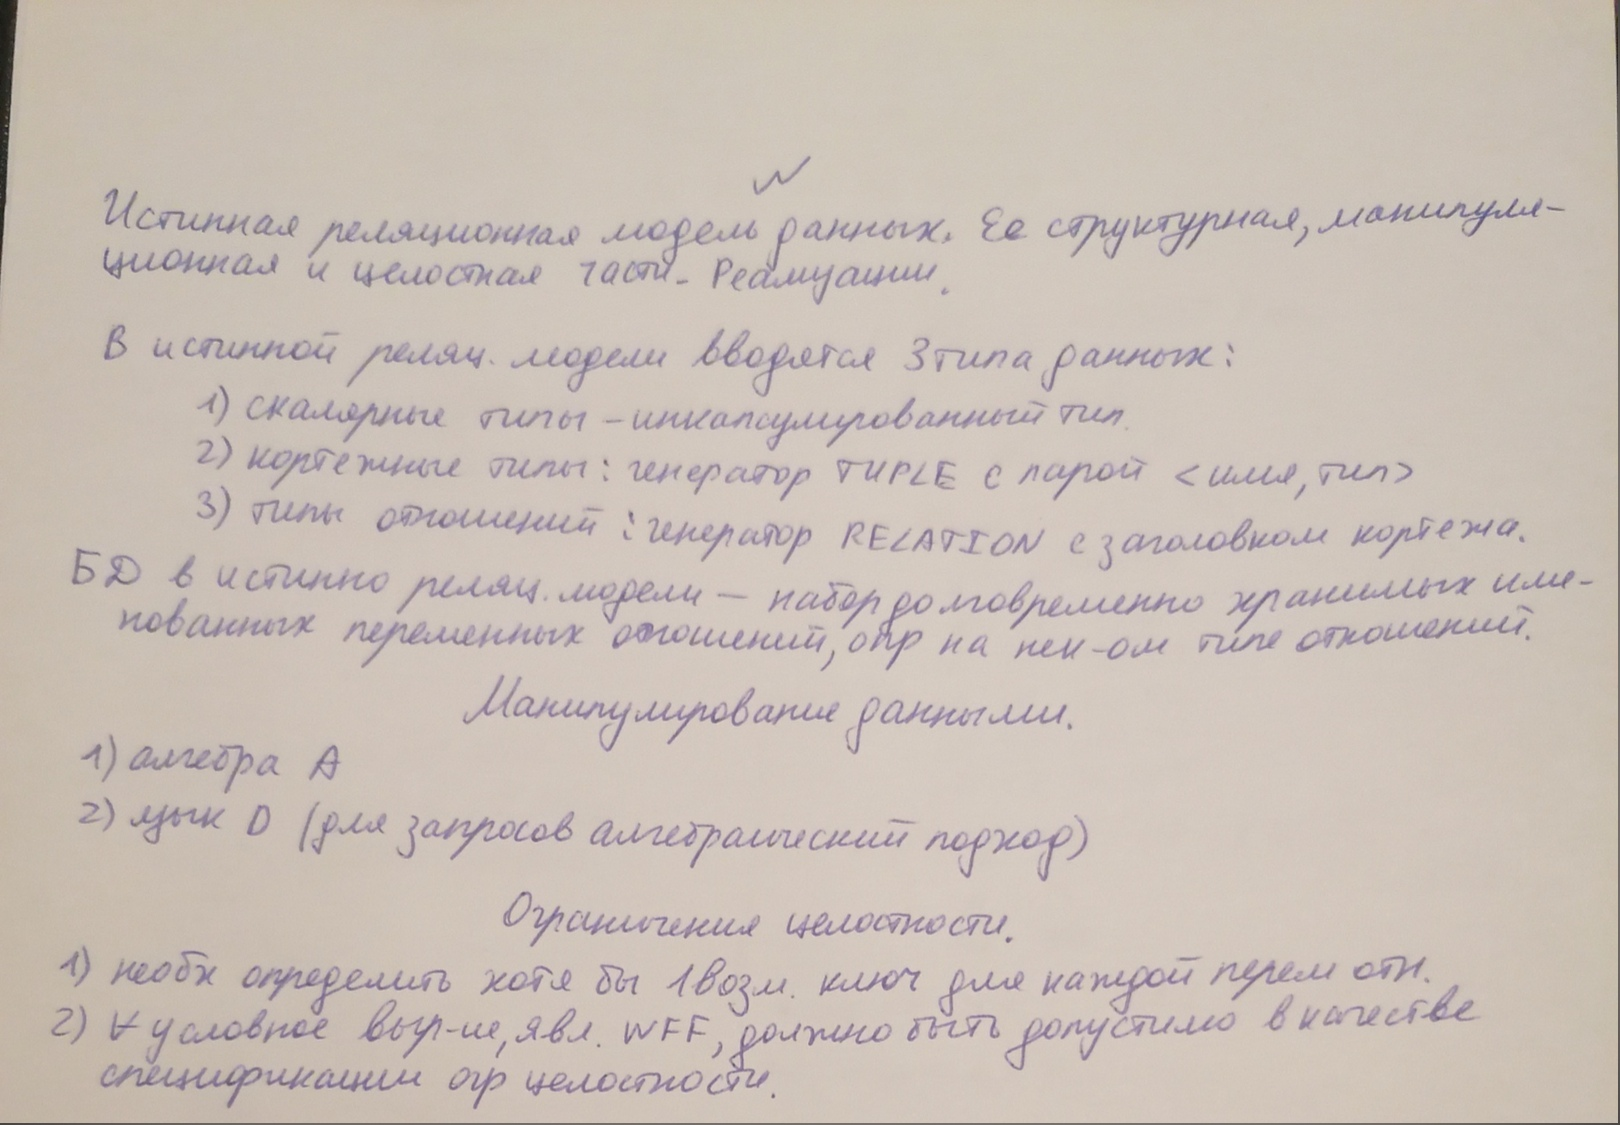 Истинная реляционная модель данных. Ее структурная, манипуля-
ционная и целостная части. Реализации.
В истинной реляц. модели вводятся 3 типа данных:
1) скалярные типы – инкапсулированный тип.
2) кортежные типы: генератор TUPLE с парой <имя, тип>
3) типы отношений: генератор RELATION с заголовком кортежа.
БД в истинно реляц. модели – набор долговременно хранимых име-
нованных переменных отношений, опр на нек-ом типе отношений.
Манипулирование данными.
1) алгебра A
2) язык D (для запросов алгебраический подход)
Ограничения целостности.
1) необх определить хотя бы 1 возм. ключ для каждой перем отн.
2) ∀ условное выр-ие, явл. WFF, должно быть допустимо в качестве
спецификации огр целостности.